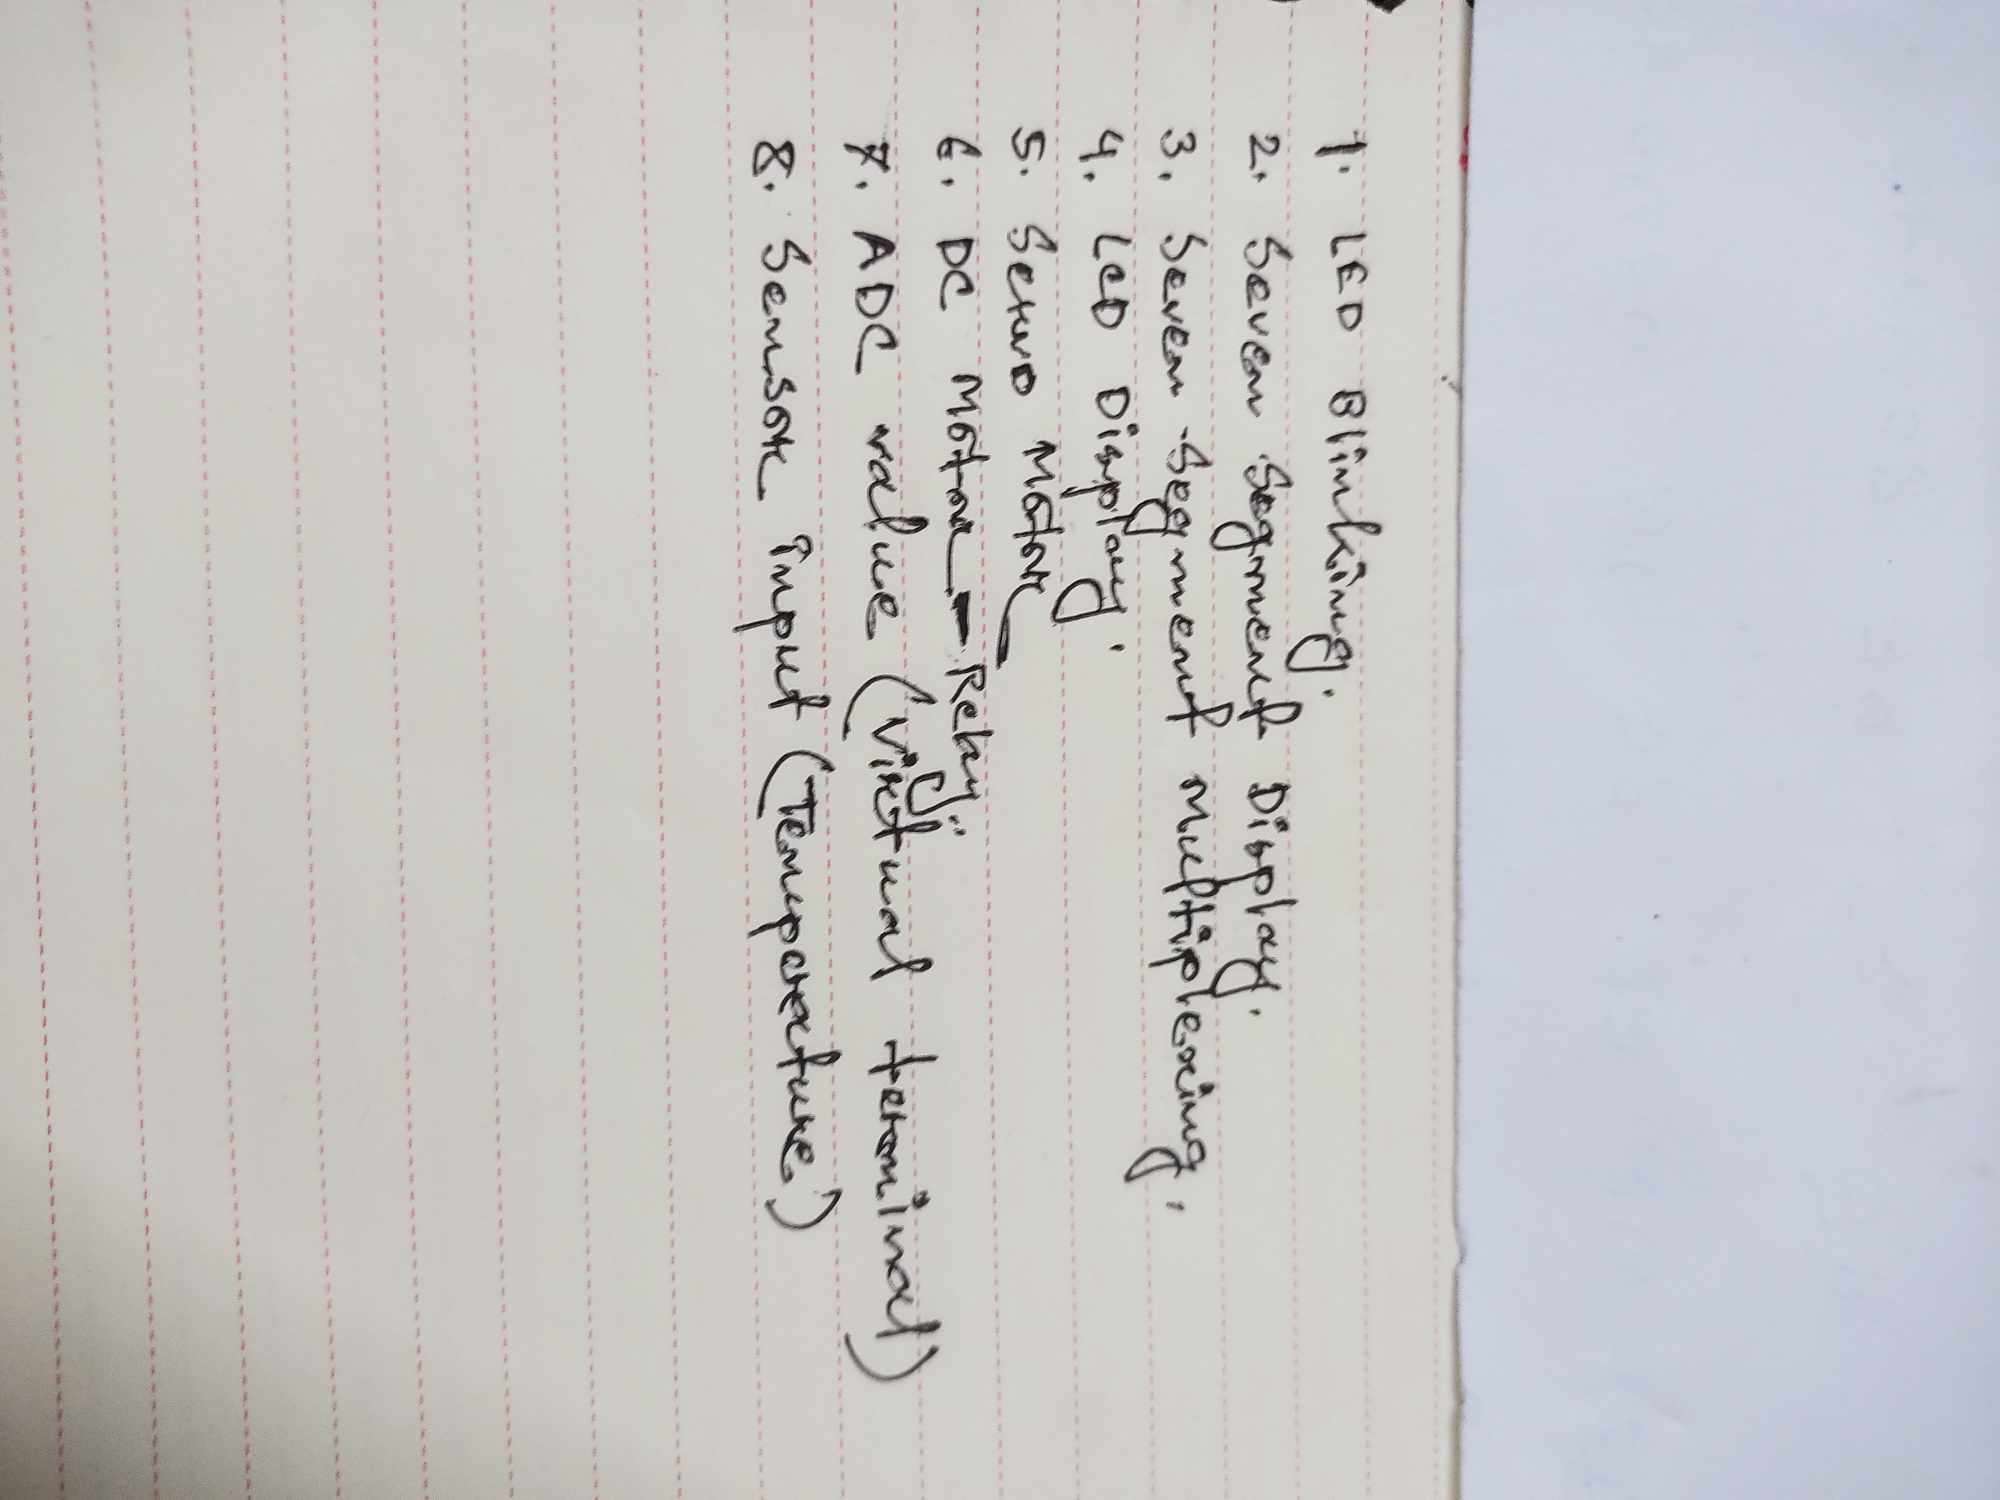 1. LED Blinking.
2. Seven Segment Display.
3. Seven Segment Multiplexing.
4. LCD Display.
5. Servo Motor
6. DC Motor - Relay..
7. ADC value (Virtual terminal)
8. Sensor input (Temperature)